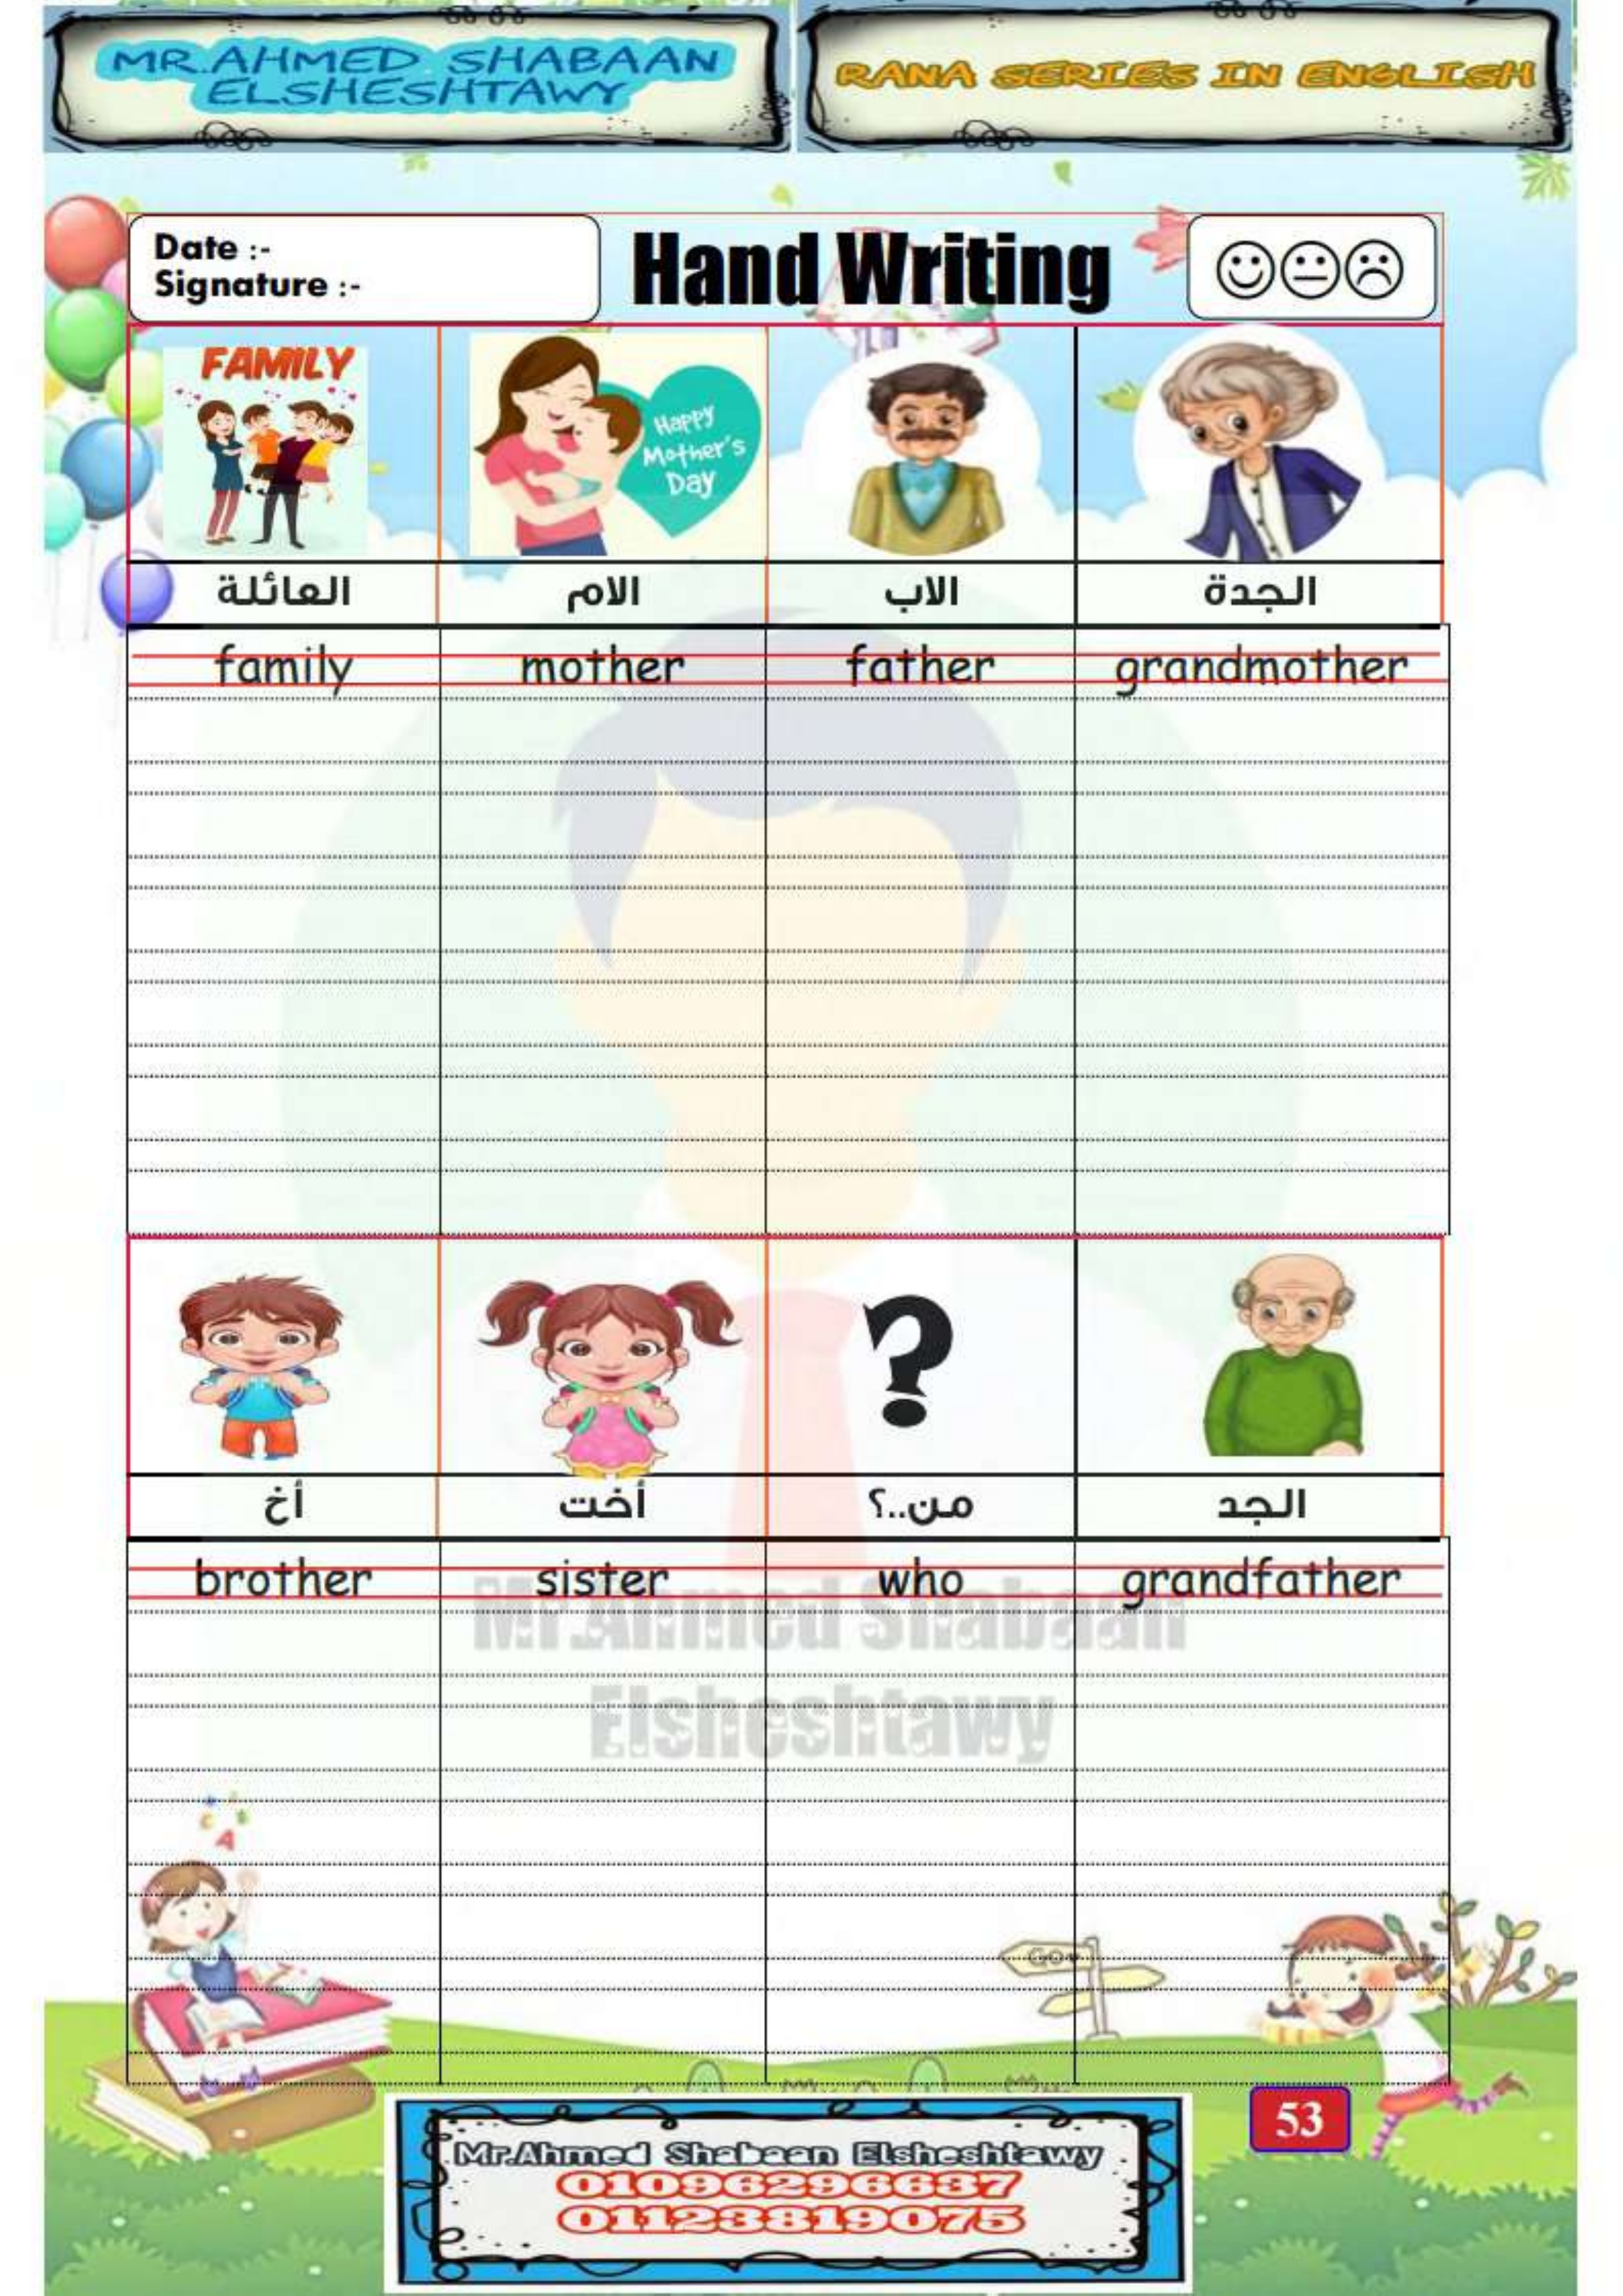 MR.AHMED SHABAAN
ELSHESHTAWY
RANA SERIES IN ENGLISH
Date :-
Signature :-
Hand Writing
FAMILY
Happy
Mother's
Day
العائلة الام الاب الجدة
family mother father grandmother
?
أخ أخت من..؟ الجد
brother sister who grandfather
Mr.Ahmed Shabaan
Elsheshtawy
A
GO
53
Mr.Ahmed Shabaan Elsheshtawy
01096296637
01123819075